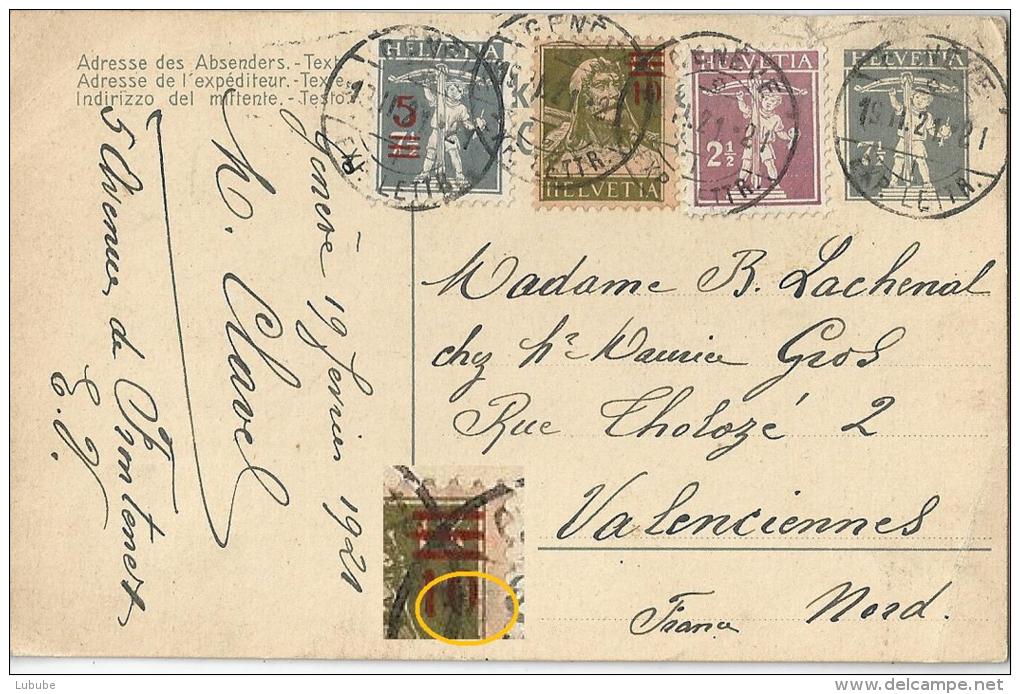 Adresse des Absenders.-Text
Adresse de l'expéditeur.-Texte
Indirizzo del mittente.-Testo
HELVETIA
5
7½
10
HELVETIA
HELVETIA
2½
HELVETIA
7½
GENÈVE
19.II.21.-21
EXP. LETTR.
Genève 19 fevrier 1921
M. Clavel
5 Avenue de Frontenex
E. V.
Madame B. Lachenal
chez Mr Maurice Gros
Rue Tholozé 2
Valenciennes
Nord.
France
Lubube
delcampe.net